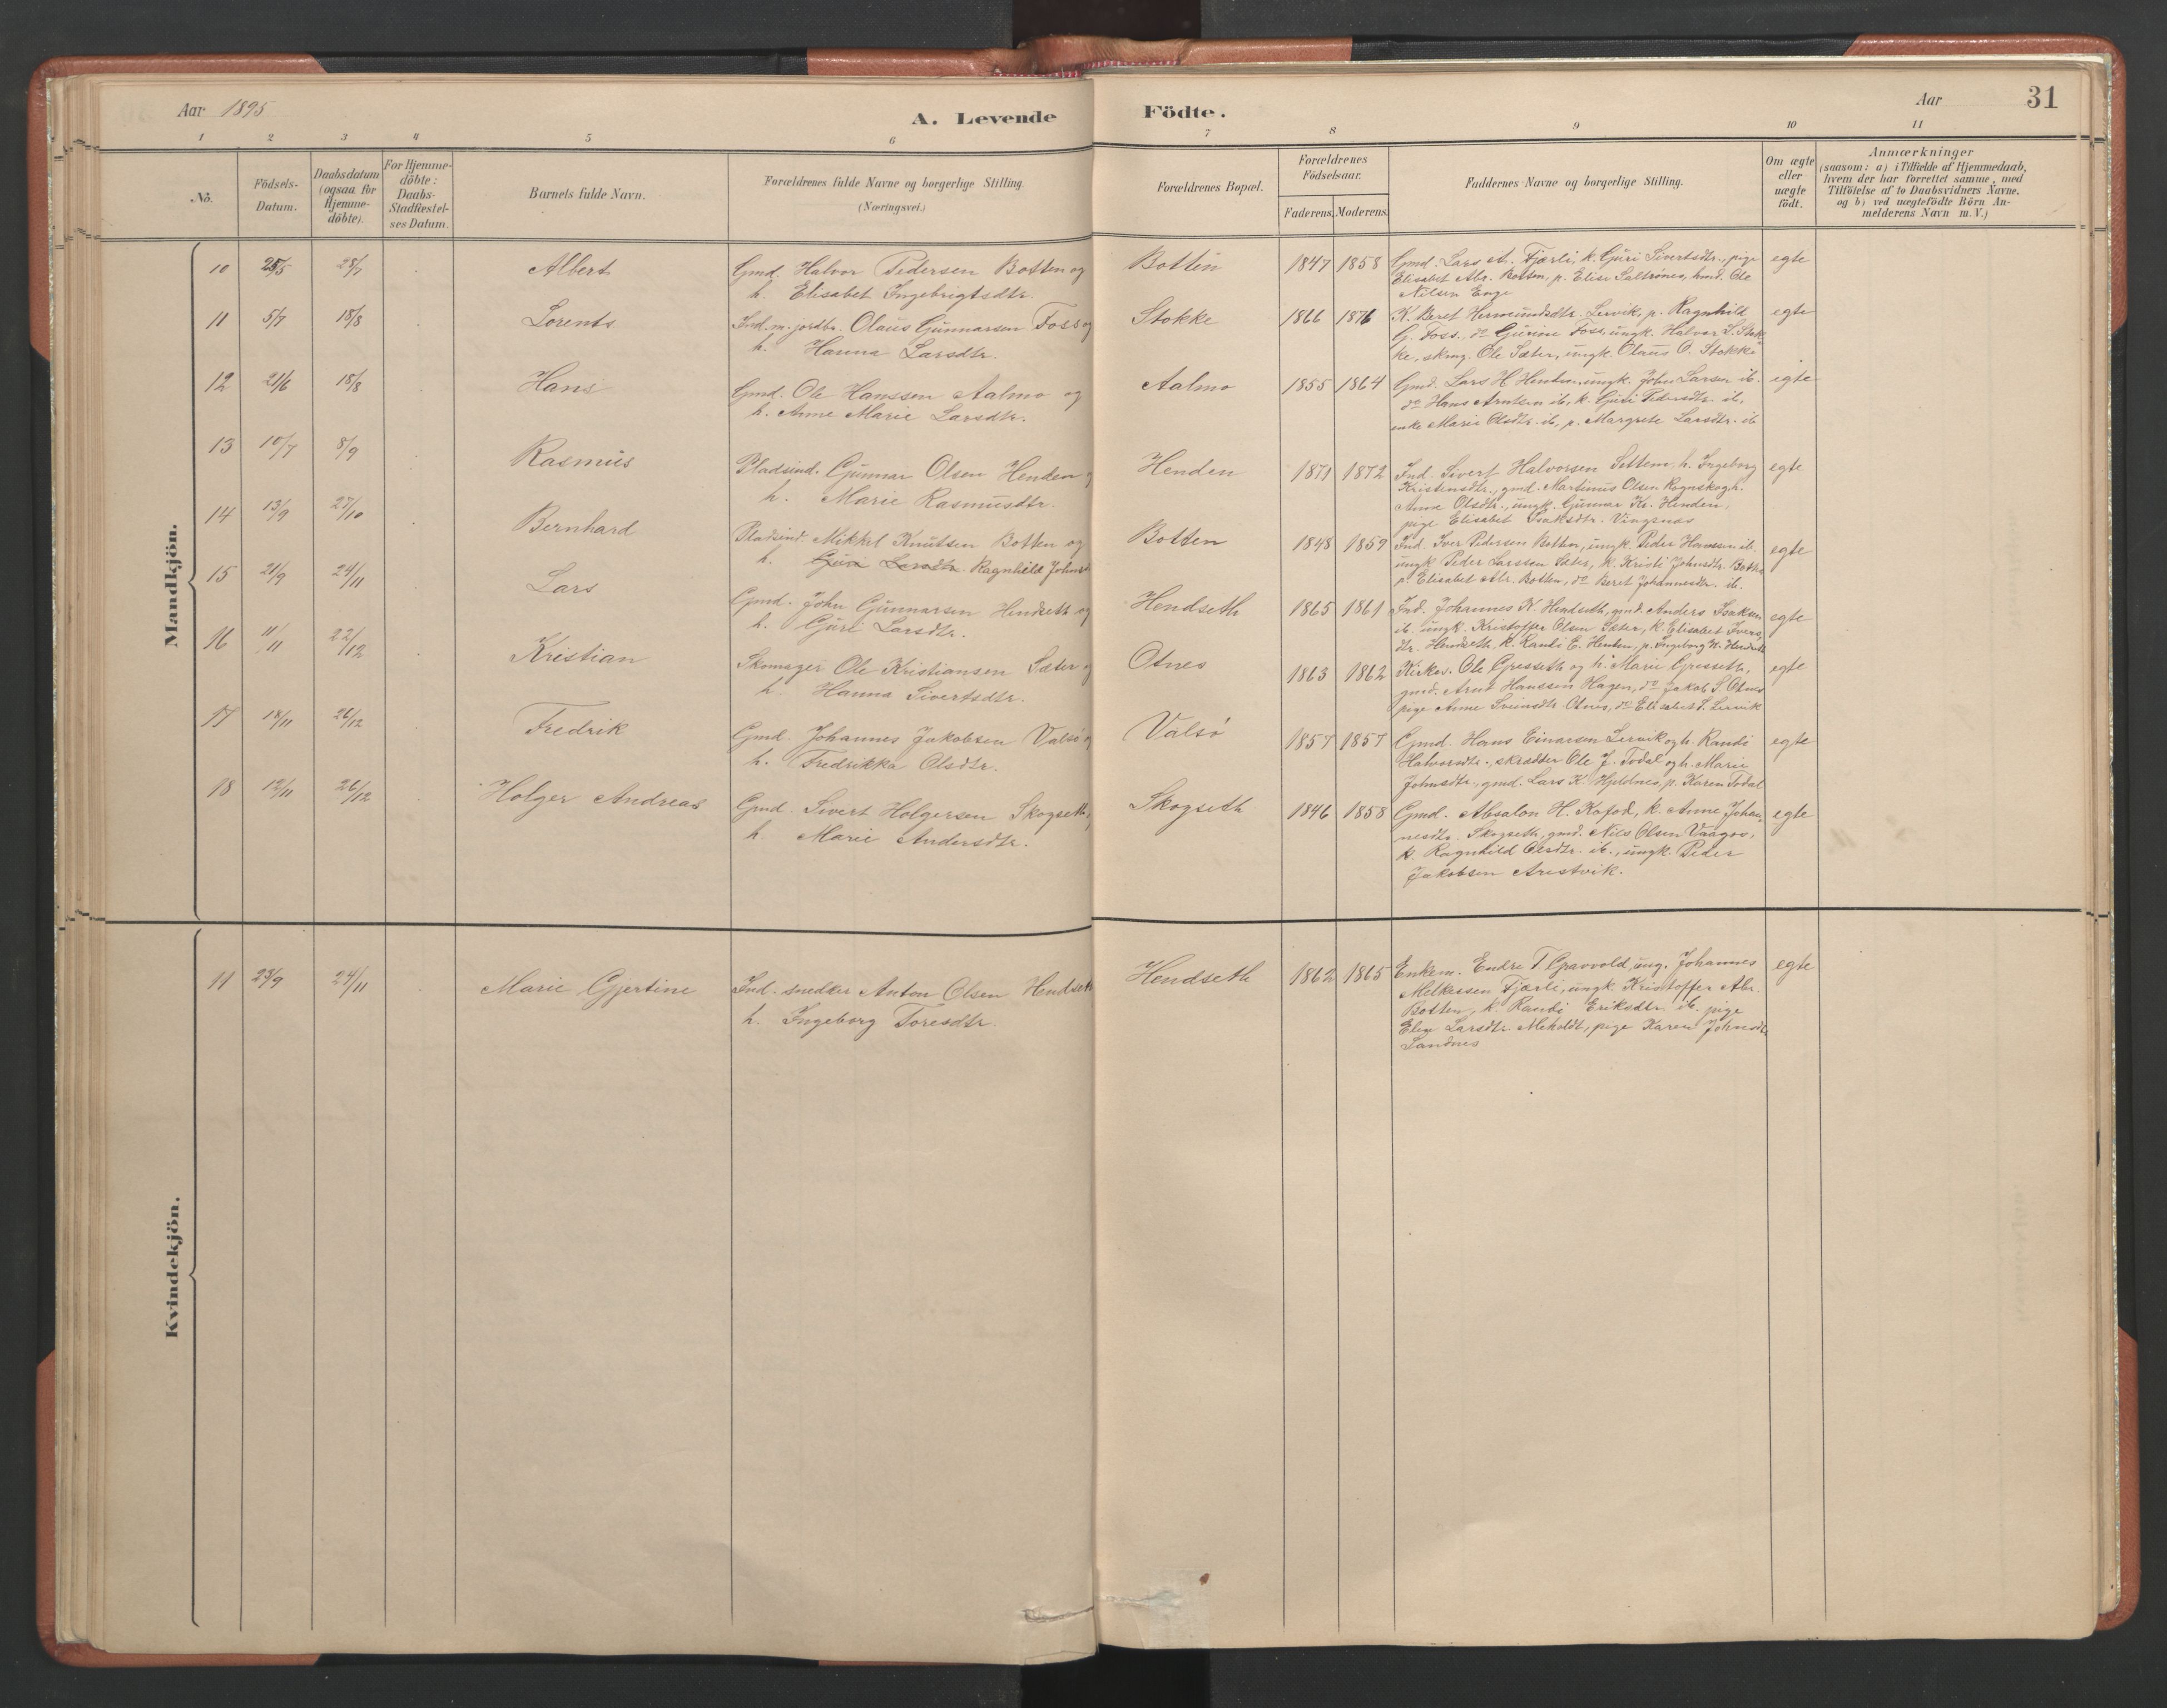 Aar 1895
A. Levende Födte.
Aar
31
1 2 3 4 5 6 7 8 9 10 11
No.
Födsels-Datum.
Daabsdatum (ogsaa for Hjemme-döbte).
For Hjemme-döbte: Daabs-Stadfæstel-ses Datum.
Barnets fulde Navn.
Forældrenes fulde Navne og borgerlige Stilling.
(Næringsvei.)
Forældrenes Bopæl.
Forældrenes Födselsaar.
Faderens. Moderens.
Faddernes Navne og borgerlige Stilling.
Om ægte eller uægte födt.
Anmærkninger
(saasom: a) i Tilfælde af Hjemmedaab,
hvem der har forrettet samme, med
Tilföielse af to Daabsvidners Navne,
og b) ved uægtefödte Börn An-
melderens Navn m.V.)
Mandkjön.
10 25/5 28/7 Albert
Gmd. Halvor Pedersen Botten og
h. Elisabet Ingebrigtsdtr.
Botten 1847 1858
Gmd. Lars Fjærli, k. Guri Sivertsdtr., pige
Elisabet Abr. Botten, p. Elise Saltrönes, hmd. Ole
Nilsen Enge
egte
11 5/7 18/8 Lorents
Ind. m. jordbr. Olaus Gunnarsen Foss og
h. Hanna Larsdtr.
Stokke 1866 1876
K. Beret Hermundsdtr. Lervik, p. Ragnhild
G. Foss, do Gurine Foss, ungk. Halvor L. Stok
ke, skmg. Ole Sæter, ungk. Olaus O. Stokke
egte
12 21/6 18/8 Hans
Gmd. Ole Hanssen Aalmo og
h. Anne Marie Larsdtr.
Aalmo 1855 1864
Gmd. Lars H. Henden, ungk. John Larsen ib.
do Hans Arntsen ib, k. Guri Pedersdtr. ib,
enke Marie Olsdtr. ib, p. Margrete Larsdtr. ib
egte
13 10/7 8/9 Rasmus
Pladsind. Gunnar Olsen Henden
h. Marie Rasmusdtr.
Henden 1871 1872
Ind. Sivert Halvorsen Settem, h. Ingeborg
Kristensdtr., gmd. Martinus Olsen Rognskog h.
Anne Olsdtr., ungk. Gunnar Kr. Henden,
pige Elisabet Isaksdtr. Vingsnas
egte
14 13/9 27/10 Bernhard
Pladsind. Mikkel Knutsen Botten og
h. Ragnhild Johnsd
Botten 1848 1859
Ind. Iver Pedersen Botten, ungk. Peder Hanssen ib.
ungk. Peder Larssen Sæter, k. Kristi Johnsdtr. Botten
p. Elisabet Abr. Botten, do Beret Johannesdtr. ib.
egte
15 21/9 24/11 Lars
Gmd. John Gunnarsen Hendseth og
h. Guri Larsdtr.
Hendseth 1865 1861
Ind. Johannes K. Hendseth, gmd. Anders Isaksen
ib. ungk. Kristoffer Olsen Sæter, k. Elisabet Ivers
dtr. Hendseth, k. Randi E. Henden, p. Ingeborg K. Hendseth
egte
16 11/11 22/12 Kristian
Skomager Ole Kristiansen Sæter og
h. Hanna Sivertsdtr.
Otnes 1863 1862
Kirkes. Ole Gresseth og h. Marie Gresseth,
gmd. Arnt Hanssen Hagen, do Jakob S. Otnes
pige Anne Sveinsdtr. Otnes, do Elisabet S. Lervik
egte
17 14/11 26/12 Fredrik
Gmd. Johannes Jakobsen Valsö og
h. Fredrikka Olsdtr.
Valsö 1857 1857
Gmd. Hans Einarsen Lervik og h. Randi
Halvorsdtr., skrædder Ole J. Todal og h. Marie
Johnsdtr., gmd. Lars K. Hjeldnes, p. Karen Todal
egte
18 12/11 26/12 Holger Andreas
Gmd. Sivert Holgersen Skogseth,
h. Marie Andersdtr.
Skogseth 1846 1858
Gmd. Absalon H. Kafod, k. Anne Johan
nesdtr. Skogseth, gmd. Nils Olsen Vaagos,
k. Ragnhild Olsdtr. ib., ungk. Peder
Jakobsen Arestvik.
egte
Kvindekjön.
11 23/9 24/11 Marie Gjertine
Ind. snedker Anton Olsen Hendseth
h. Ingeborg Toresdtr.
Hendseth 1862 1865
Enkem. Endre T. Gravvold, ung. Johannes
Melkersen Fjærli, ungk. Kristoffer Abr.
Botten, k. Randi Eriksdtr. ib. pige
Elen Larsdtr. Meholdt, pige Karen Johnsdtr
Sandnes
egte